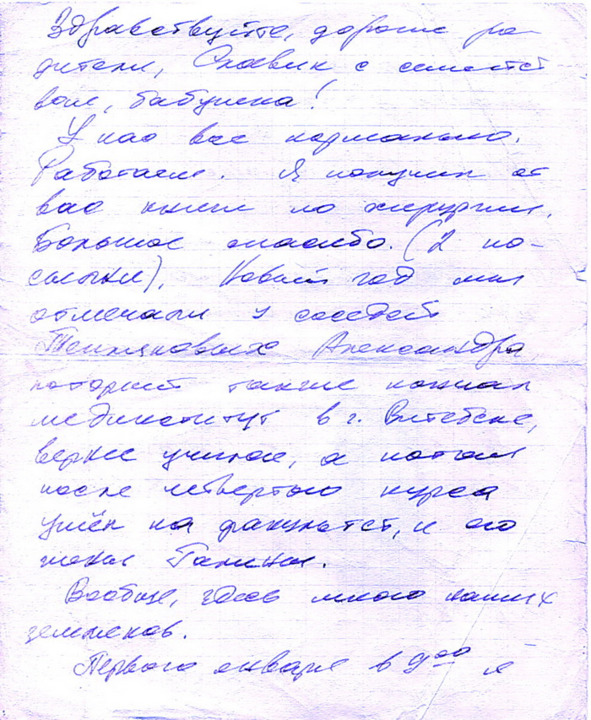 Здравствуйте, дорогие ро-
дители, Славик с семейст
вом, бабушка!
У нас все нормально.
Работаем. Я получил от
вас книги по хирургии.
Большое спасибо. (2 по-
сылки). Новый год мы
отмечали у соседей
Александра
который также кончал
мединститут в г. Витебске,
вернее учился, а потом
после четвертого курса
ушёл на факультет, и его
жены Галины.
Вообще, здесь много наших
земляков.
Первого января в 9⁰⁰ я